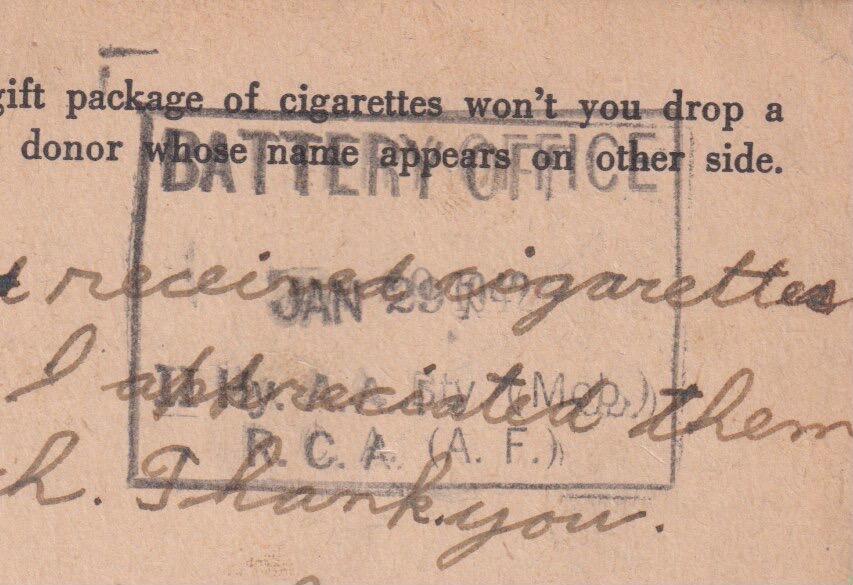 gift package of cigarettes won't you drop a
donor whose name appears on other side.
BATTERY OFFICE
received cigarettes
JAN 29
I appreciated them
Hy. A.A. Bty. (Mob.)
R. C. A. (A. F.)
Thank you.